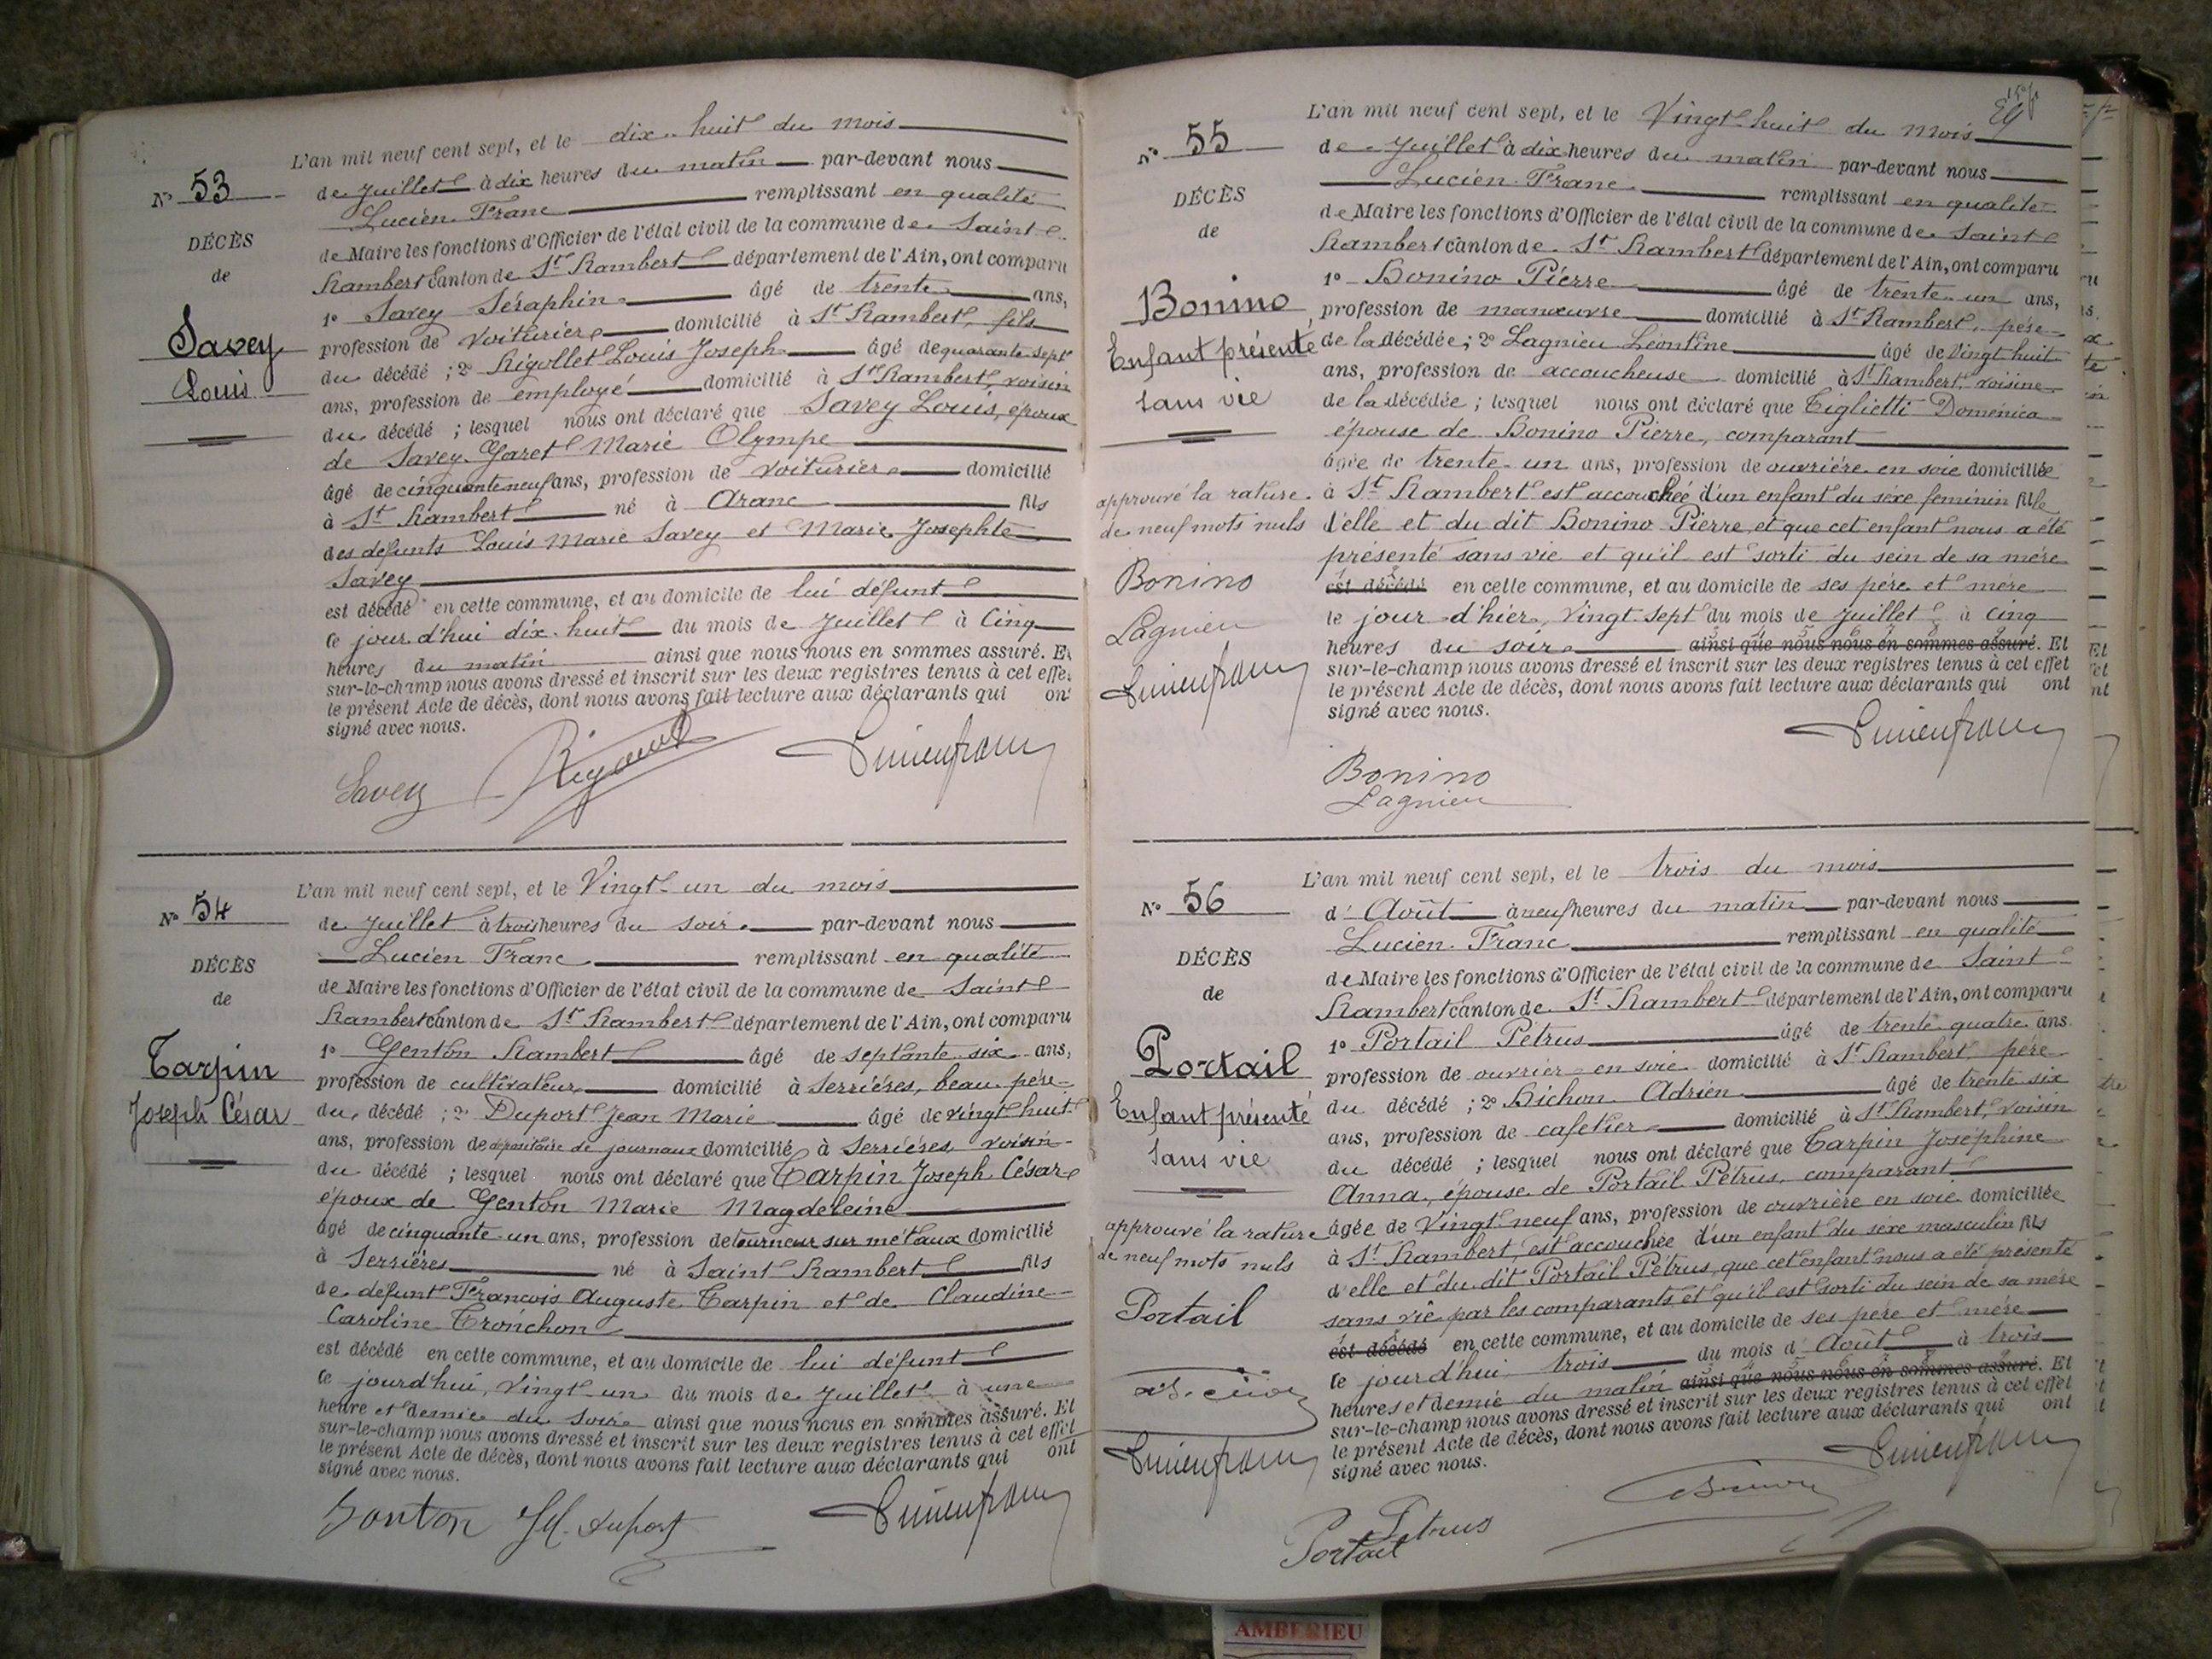 L'an mil neuf cent sept, et le dix-huit du mois
de Juillet à dix heures du matin par-devant nous
Lucien Franc remplissant en qualité
de Maire les fonctions d'Officier de l'état civil de la commune de Saint
Rambert canton de St Rambert département de l'Ain, ont comparu
1° Savey Séraphin âgé de trente ans,
profession de voiturier domicilié à St Rambert, fils
du décédé ; 2° Rigollet Louis Joseph âgé de quarante sept
ans, profession de employé domicilié à St Rambert, voisin
du décédé ; lesquel nous ont déclaré que Savey Louis, époux
de Savey-Garet Marie Olympe
âgé de cinquante neuf ans, profession de voiturier domicilié
à St Rambert né à Aranc fils
des défunts Louis Marie Savey et Marie Josephte
Savey
est décédé en cette commune, et au domicile de lui défunt
ce jour d'hui dix-huit du mois de Juillet à cinq
heures du matin ainsi que nous nous en sommes assuré. Et
sur-le-champ nous avons dressé et inscrit sur les deux registres tenus à cet effet
le présent Acte de décès, dont nous avons fait lecture aux déclarants qui ont
signé avec nous.
N° 53
DÉCÈS
de
Savey
Louis
Savey
L'an mil neuf cent sept, et le Vingt-un du mois
de Juillet à trois heures du soir par-devant nous
Lucien Franc remplissant en qualité
de Maire les fonctions d'Officier de l'état civil de la commune de Saint
Rambert canton de St Rambert département de l'Ain, ont comparu
1° Genton Rambert âgé de septante six ans,
profession de cultivateur domicilié à Serrières, beau-père
du décédé ; 2° Duport Jean Marie âgé de vingt huit
ans, profession de dépositaire de journaux domicilié à Serrières, voisin
du décédé ; lesquel nous ont déclaré que Tarpin Joseph César
époux de Genton Marie Magdeleine
âgé de cinquante-un ans, profession de tourneur sur métaux domicilié
à Serrières né à Saint Rambert fils
de défunt François Auguste Tarpin et de Claudine
Caroline Tronchon
est décédé en cette commune, et au domicile de lui défunt
ce jourd'hui, vingt-un du mois de Juillet à une
heure et demie du soir ainsi que nous nous en sommes assuré. Et
sur-le-champ nous avons dressé et inscrit sur les deux registres tenus à cet effet
le présent Acte de décès, dont nous avons fait lecture aux déclarants qui ont
signé avec nous.
N° 54
DÉCÈS
de
Tarpin
Joseph César
Jonton JM. Duport
L'an mil neuf cent sept, et le Vingt-huit du mois
de Juillet à dix heures du matin par-devant nous
Lucien Franc remplissant en qualité
de Maire les fonctions d'Officier de l'état civil de la commune de Saint
Rambert canton de St Rambert département de l'Ain, ont comparu
1° Bonino Pierre âgé de trente-un ans,
profession de manœuvre domicilié à St Rambert, père
de la décédée ; 2° Lagnieu Léontine âgé de Vingt huit
ans, profession de accoucheuse domicilié à St Rambert, voisine
de la décédée ; lesquel nous ont déclaré que Tiglietti Doménica
épouse de Bonino Pierre, comparant
âgée de trente-un ans, profession de ouvrière en soie domiciliée
à St Rambert est accouchée d'un enfant du sexe feminin fille
d'elle et du dit Bonino Pierre, et que cet enfant nous a été
présenté sans vie et qu'il est sorti du sein de sa mère
est décédé en cette commune, et au domicile de ses père et mère
le jour d'hier, vingt-sept du mois de Juillet à cinq
heures du soir ainsi que nous nous en sommes assuré. Et
sur-le-champ nous avons dressé et inscrit sur les deux registres tenus à cet effet
le présent Acte de décès, dont nous avons fait lecture aux déclarants qui ont
signé avec nous.
N° 55
DÉCÈS
de
Bonino
Enfant présenté
sans vie
approuvé la rature
de neuf mots nuls
Bonino
Lagnieu
Lucien franc
Lucien franc
Bonino
Lagnieu
L'an mil neuf cent sept, et le trois du mois
d'Août à neuf heures du matin par-devant nous
Lucien Franc remplissant en qualité
de Maire les fonctions d'Officier de l'état civil de la commune de Saint
Rambert canton de St Rambert département de l'Ain, ont comparu
1° Portail Pétrus âgé de trente-quatre ans
profession de ouvrier en soie domicilié à St Rambert, père
du décédé ; 2° Bichon Adrien âgé de trente six
ans, profession de cafetier domicilié à St Rambert, voisin
du décédé ; lesquel nous ont déclaré que Tarpin Joséphine
Anna, épouse de Portail Pétrus, comparant
âgée de Vingt-neuf ans, profession de ouvrière en soie domiciliée
à St Rambert, est accouchée d'un enfant du sexe masculin fils
d'elle et du dit Portail Pétrus, que cet enfant nous a été présenté
sans vie par les comparants et qu'il est sorti du sein de sa mère
est décédé en cette commune, et au domicile de ses père et mère
le jourd'hui trois du mois d'Août à trois
heures et demie du matin ainsi que nous nous en sommes assuré. Et
sur-le-champ nous avons dressé et inscrit sur les deux registres tenus à cet effet
le présent Acte de décès, dont nous avons fait lecture aux déclarants qui ont
signé avec nous.
N° 56
DÉCÈS
de
Portail
Enfant présenté
sans vie
approuvé la rature
de neuf mots nuls
Portail
Lucien franc
Lucien franc
Petrus
Portail
AMBERIEU